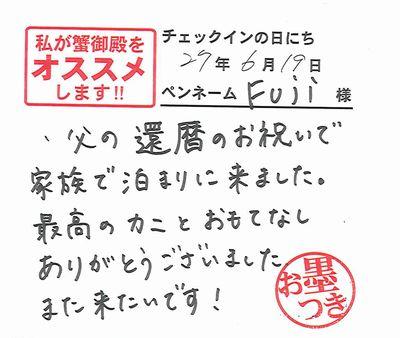 私が蟹御殿を
オススメ
します!!
チェックインの日にち
27年6月19日
ペンネーム Fuji 様
、父の還暦のお祝いで
家族で泊まりに来ました。
最高のカニとおもてなし
ありがとうございました
また来たいです！
お墨
つき